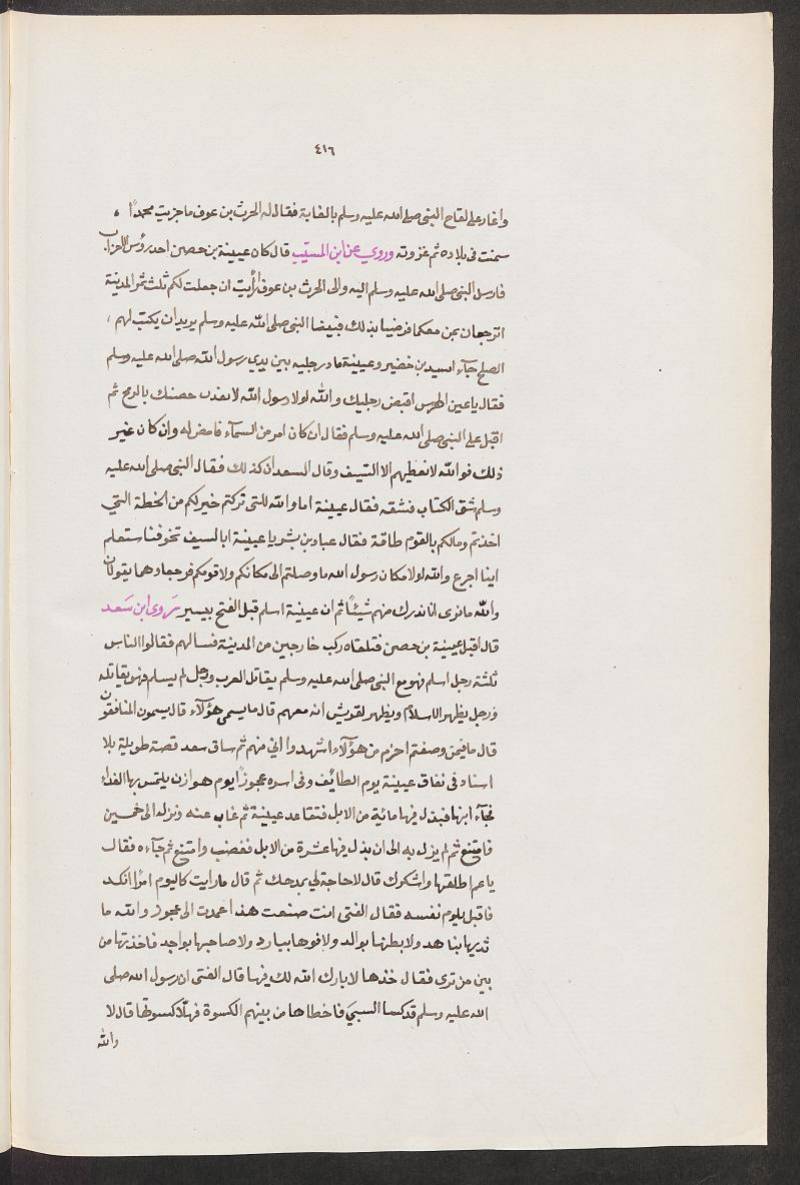 ٤١٦
واغار على لقاح النبى صلى الله عليه وسلم بالغابة فقال له الحرث بن عوف ما جزيت محمدًا ،
سمنت فى بلاده ثم غزوته وروي عن ابن المسيّب قال كان عيينة بن حصين احد رؤس الاحزاب
فارسل النبى صلى الله عليه وسلم اليه والى الحرث بن عوف أرأيت ان جعلت لكم ثلث ثمر المدينة
اترجعان بمن معكما فرضيا بذلك فبينما النبى صلى الله عليه وسلم يريد ان يكتب لهم ،
الصلح جآء اسيد بن خضير وعيينة ماد رجليه بين يدي رسول الله صلى الله عليه وسلم
فقال يا عين الهرس اقبض رجليك والله لولا رسول الله لانفذت حصنك بالرمح ثم
اقبل على النبى صلى الله عليه وسلم فقال ان كان امر من السمآء فامض له وان كان غير
ذلك فوالله لا نعطيهم الا السّيف وقال السعدان كذلك فقال النبى صلى الله عليه
وسلم شق الكتاب فشقه فقال عيينة اما والله للتى تركتم خير لكم من الخطة التي
اخذتم ومالكم بالقوم طاقة فقال عباد بن بشر يا عيينة ابالسيف تخوفنا ستعلم
اينا اجرع والله لولا مكان رسول الله ما وصلتم الى مكانكم ولا قومكم فرجعا وهما يقولان
والله ما نرى انا ندرك منهم شيئًا ثم ان عيينة اسلم قبل الفتح بيسير وَروى ابن سَعد
قال اقبل عيينة بن حصن فتلقاه ركب خارجين من المدينة فسالهم فقالوا الناس
ثلثة رجل اسلم فهو مع النبى صلى الله عليه وسلم يقاتل العرب ورجل لم يسلم فهو يقاتله
ورجل يظهر الاسلام ويظهر لقريش انه معهم قال ما يسمى هؤلآء قال يسمون المنافقون
قال ما فيمن وصفتم احزم من هؤلآء اشهدوا اني منهم ثم ساق سعد قصة طويلة بلا
اسناد فى نفاق عيينة يوم الطائف وفى اسره عجوزًا يوم هوازن يلتمس بها الفداء
فجآء ابنها فبذل فيها مائية من الابل فتقاعد عيينة ثم غاب عنه ونزله الى خمسين
فامتنع ثم لم يزل به الى ان بذل فيها عشرة من الابل فغضب وامتنع ثم جآءه فقال
يا عم اطلقها واشكرك قال لا حاجة لي بمدحك ثم قال ما رايت كاليوم امرًا انكد
فاقبل يلوم نفسه فقال الفتى انت صنعت هذا عمدت الى عجوز والله ما
ثديها بناهد ولا بطنها بوالد ولا فوها ببارد ولا صاحبها بواجد فاخذتها من
بين من ترى فقال خذها لا بارك الله لك فيها قال الفتى ان رسول الله صلى
الله عليه وسلم قد كسا السبيَ فاخطاها من بينهم الكسوة فهلّا كسوتها قال لا
والله